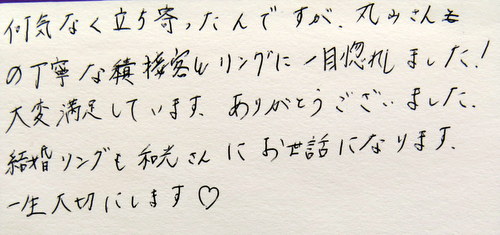 何気なく立ち寄ったんですが、丸山さん
の丁寧な 接客とリングに一目惚れしました!
大変満足しています。ありがとうございました。
結婚リングも和光さんにお世話になります。
一生大切にします♡